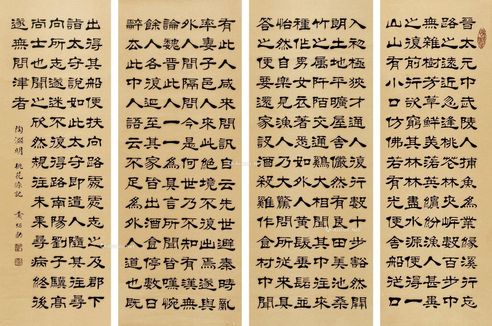 晉太元中武陵人捕魚爲業緣溪行忘
路之遠近忽逢桃花林夾岸數百步中
無雜樹芳草鮮美落英繽紛漁人甚異
之復前行欲窮其林林盡水源便得一
山山有小口仿佛若有光便舍船從口
入初極狹纔通人復行數十步豁然開
朗土地平曠屋舍儼然有良田美池桑
竹之屬阡陌交通雞犬相聞其中往來
種作男女衣著悉如外人黃髮垂髫並
怡然自樂見漁人乃大驚問所從來具
答之便要還家設酒殺雞作食村中聞
有此人咸來問訊自云先世避秦時亂
率妻子邑人來此絕境不復出焉遂與
外人間隔問今是何世乃不知有漢無
論魏晉此人一一爲具言所聞皆歎惋
餘人各復延至其家皆出酒食停數日
辭去此中人語云不足爲外人道也既
出得其船便扶向路處處志之及郡下
詣太守說如此太守即遣人隨其往尋
向所志遂迷不復得路南陽劉子驥高
尚士也聞之欣然規往未果尋病終後
遂無問津者
陶淵明 桃花源記